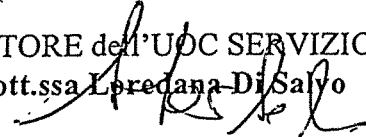 TORE dell'UOC SERVIZIO
ott.ssa Loredana Di Salvo